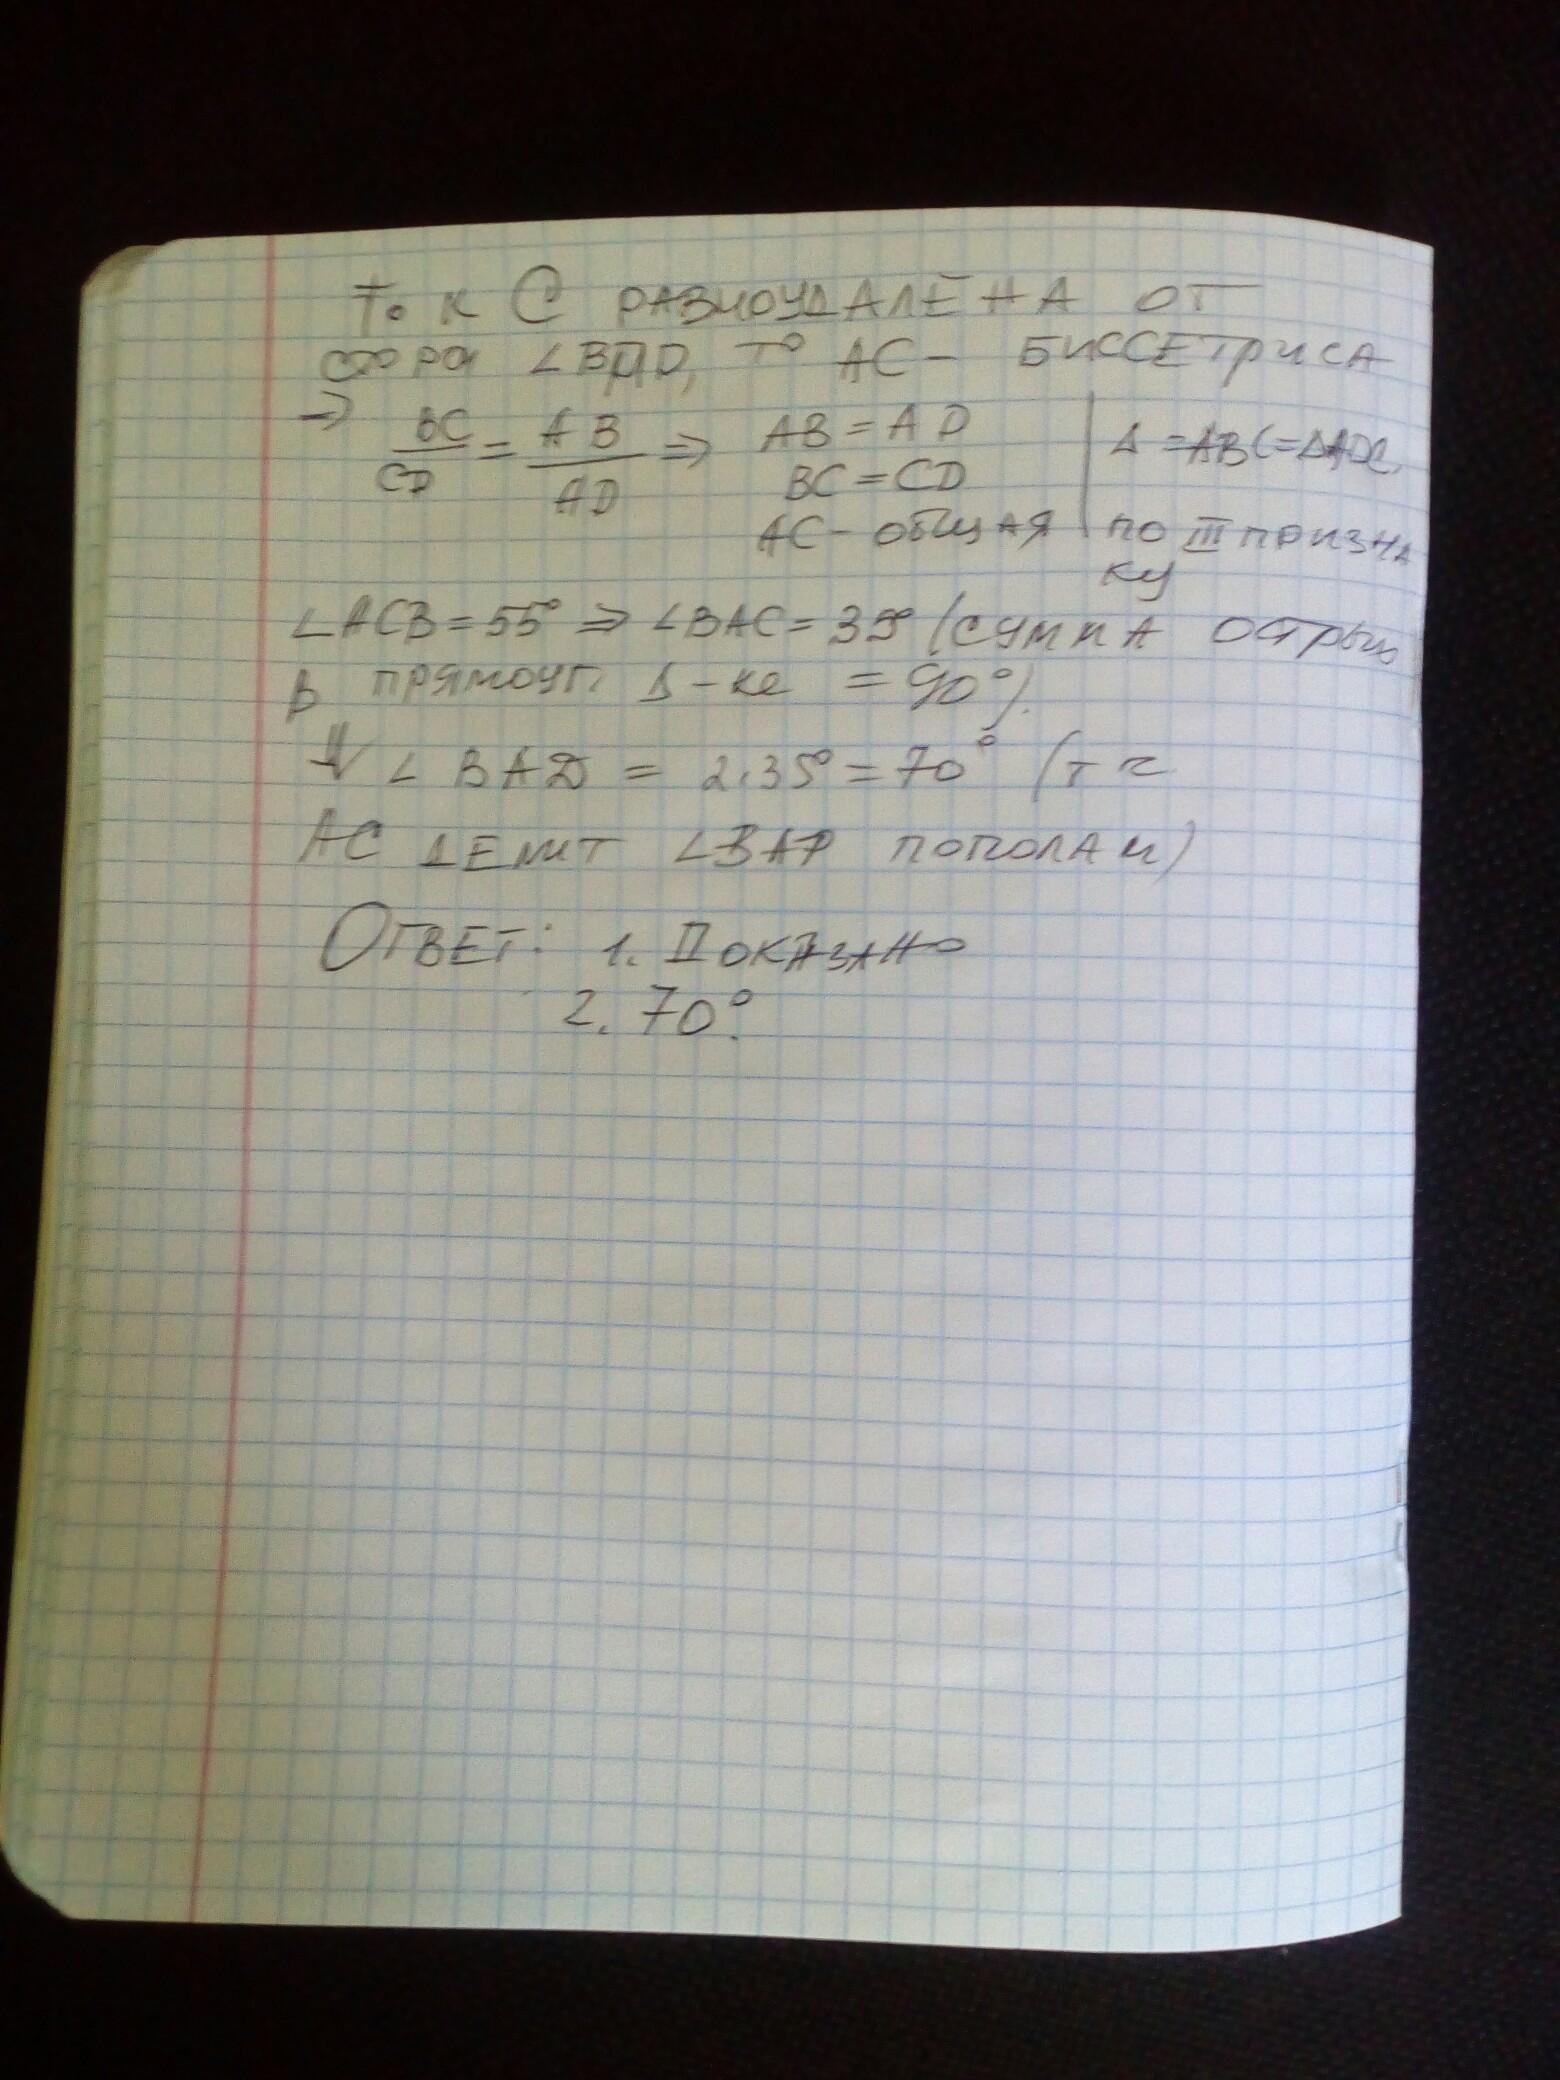 Т.к С равноудалёна от
сторон ∠BAD, то AC - биссетриса
⇒ BC/CD = AB/AD ⇒ AB = AD | Δ = ABC = ΔADC
BC = CD
AC - общая | по III призна
ку
∠ACB = 55° ⇒ ∠BAC = 35° (сумма острых
в прямоуг. Δ-ке = 90°).
⇓ ∠BAD = 2·35° = 70° (т к
AC делит ∠BAD пополам)
Ответ: 1. Показано
2. 70°.